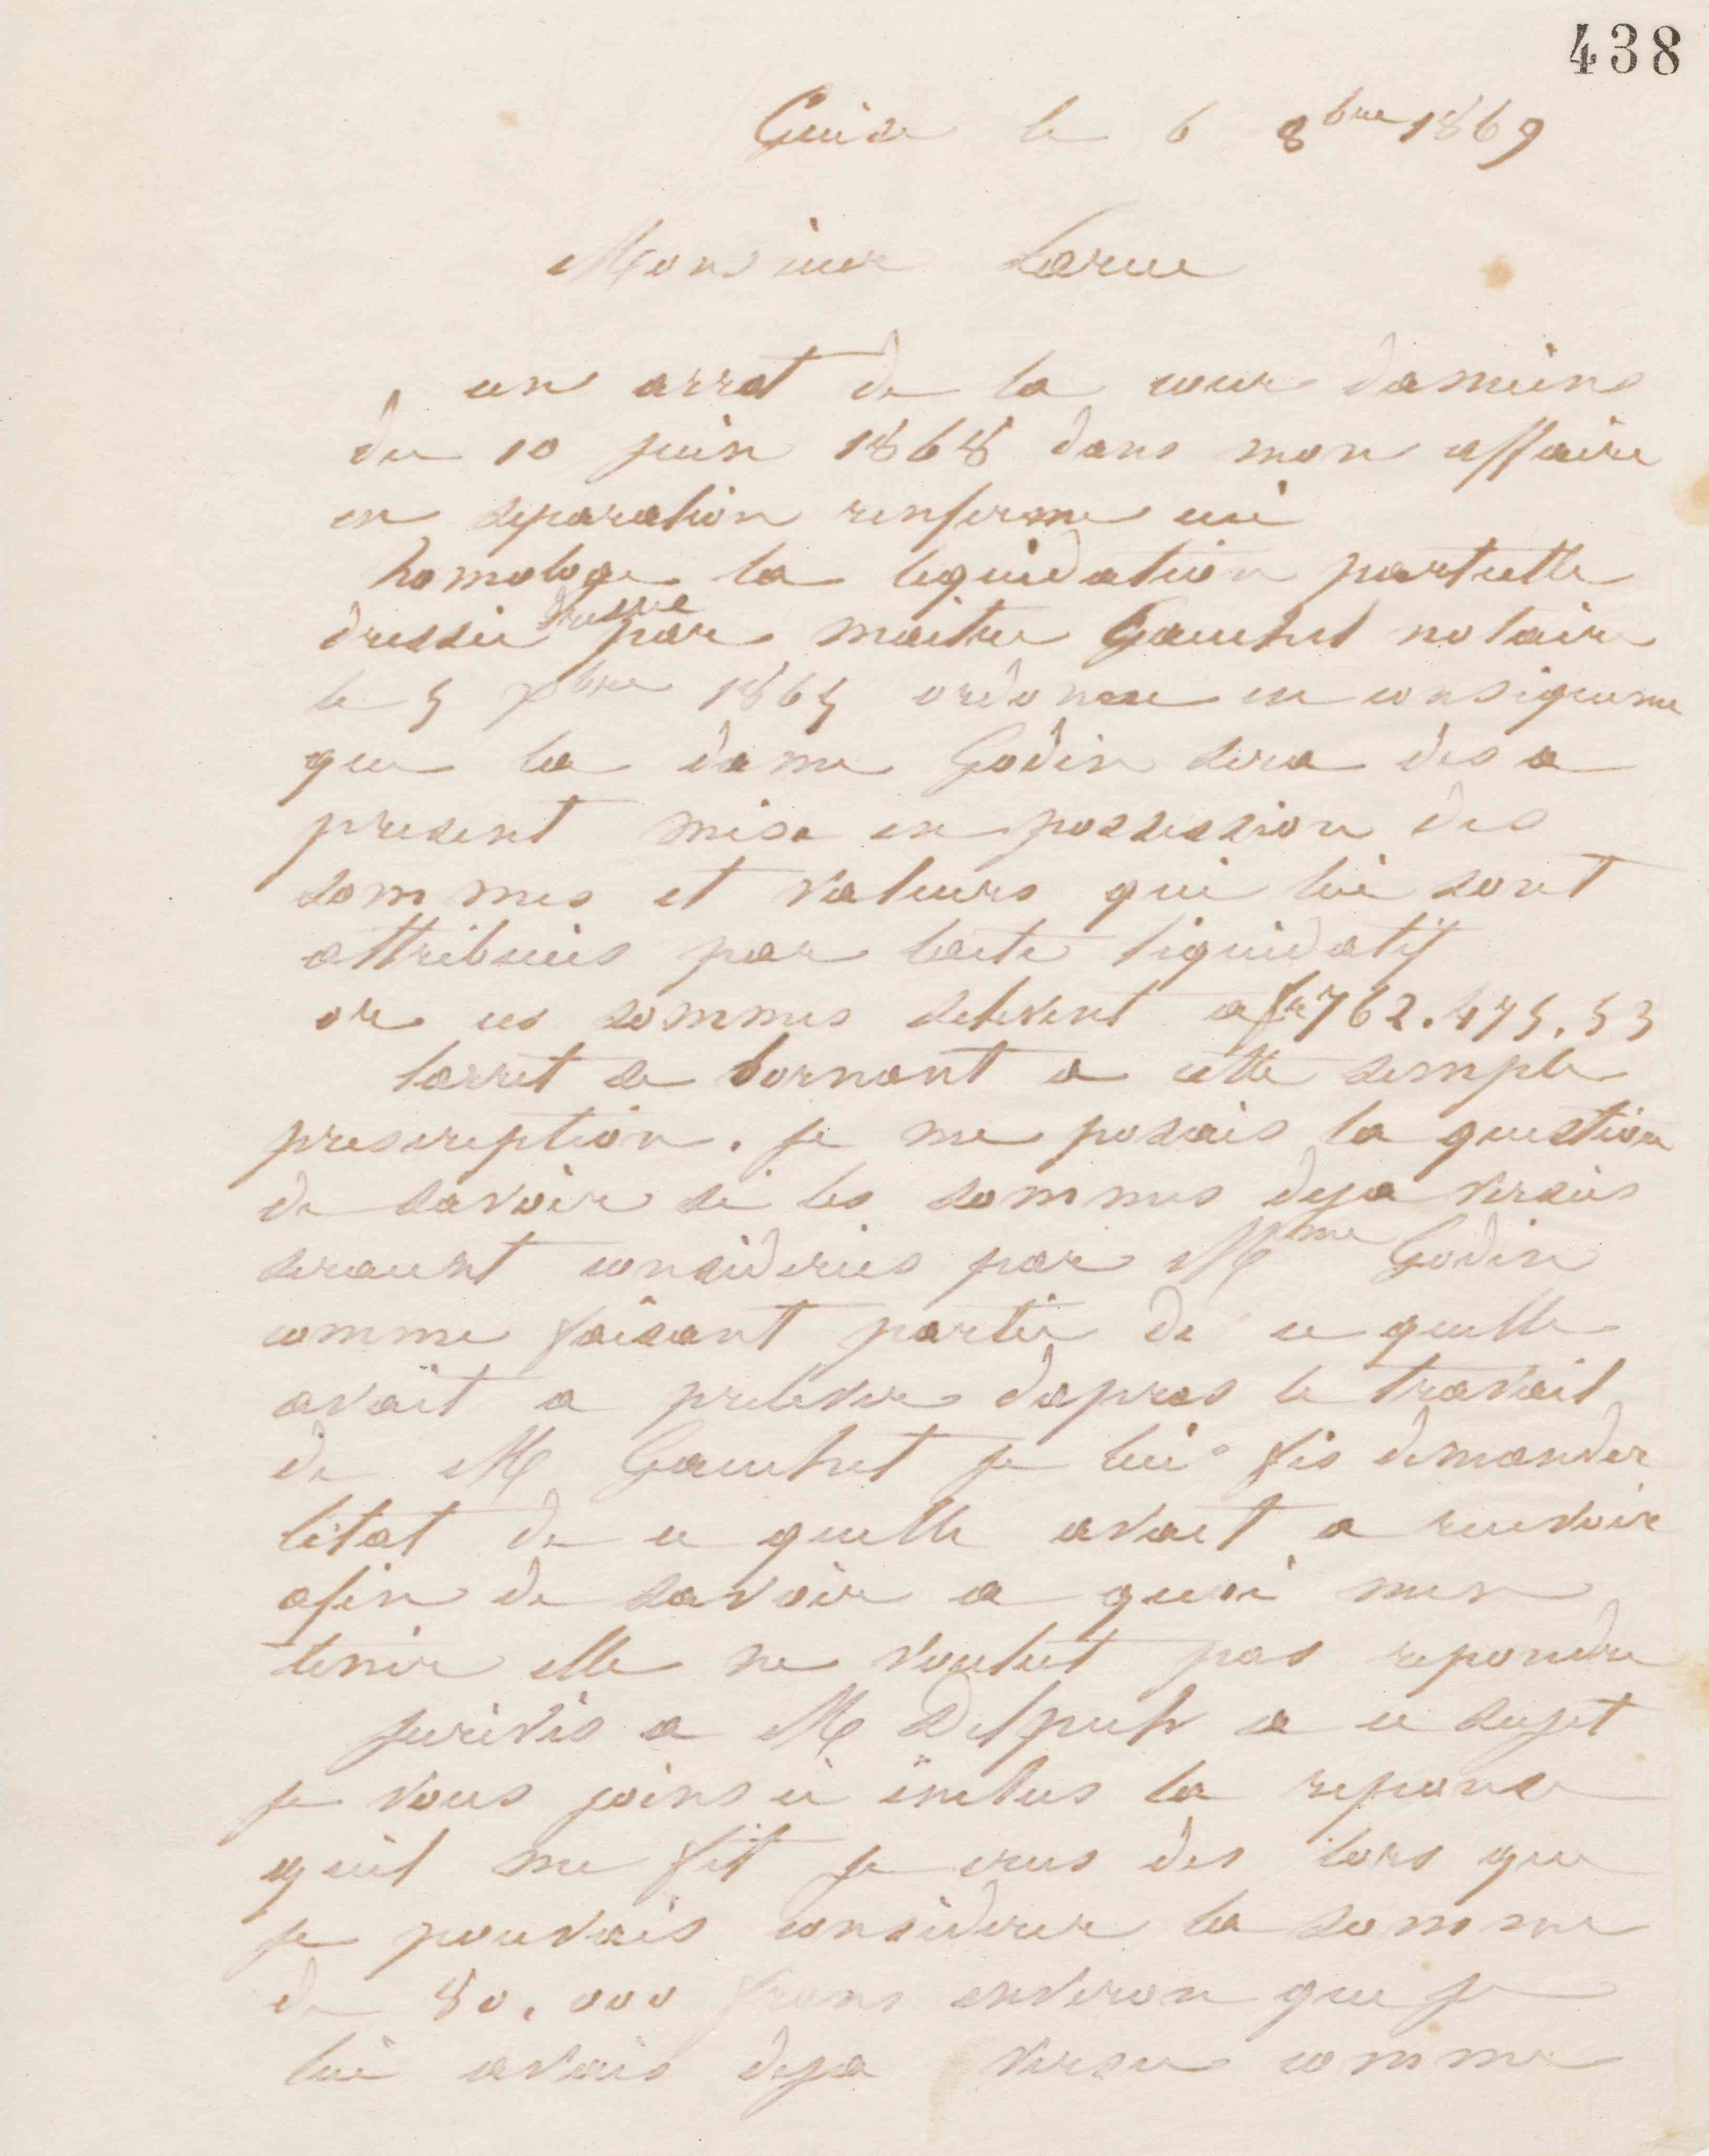 438
Guise le 6 8bre 1869
Monsieur Larue
un arret de la cour damiens
du 10 juin 1868 dans mon affaire
en separation renferme ceci
homologue la liquidation partielle
dressée dressée par maitre Gauchet notaire
le 5 xbre 1865 ordonne en consequence
que la dame Godin sera des a
present mise en possession des
sommes et valeurs qui lui sont
attribuées par lacte liquidatif
or ces sommes selevent a fr 762.475.53
larret se bornant a cette simple
prescription. je me posais la question
de savoir si les sommes deja versées
seraient considerées par Mme Godin
comme faisant partie de ce quelle
avait a prelever dapres le travail
de M Gauchet je lui fis demander
létat de ce quelle avait a recevoir
afin de savoir a quoi men
tenir elle ne voulut pas repondre
jecrivis a M Delpech a ce sujet
je vous joins ci inclus la reponse
quil me fit je crus des lors que
je pouvais considerer la somme
de 80.000 frans environ que je
lui avais deja versée comme